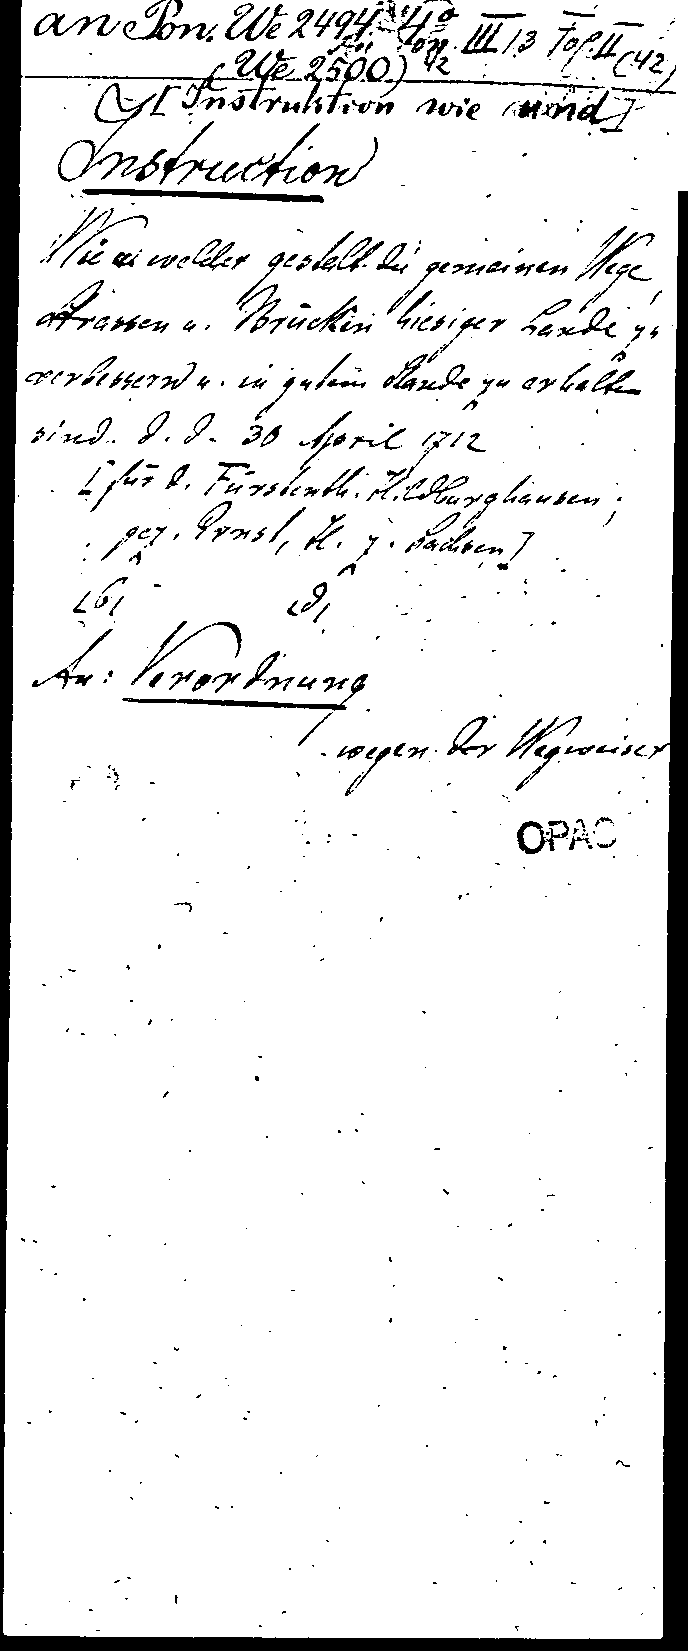 an Pon. We 2494, 4°
(We 2500) an Pon. III 13 Top. II (42)
[Instruktion wie und]
Instruction
Wie u. welcher gestalt die gemeinen Wege,
Strassen u. Brücken hiesiger Lande zu
verbessern u. in gutem Stande zu erhalten
sind. d. d. 30 April 1712
[für d. Fürstenth. Hildburghausen;
gez. Ernst, H. z. Sachsen]
An: Verordnung
wegen der Wegweiser
OPAC